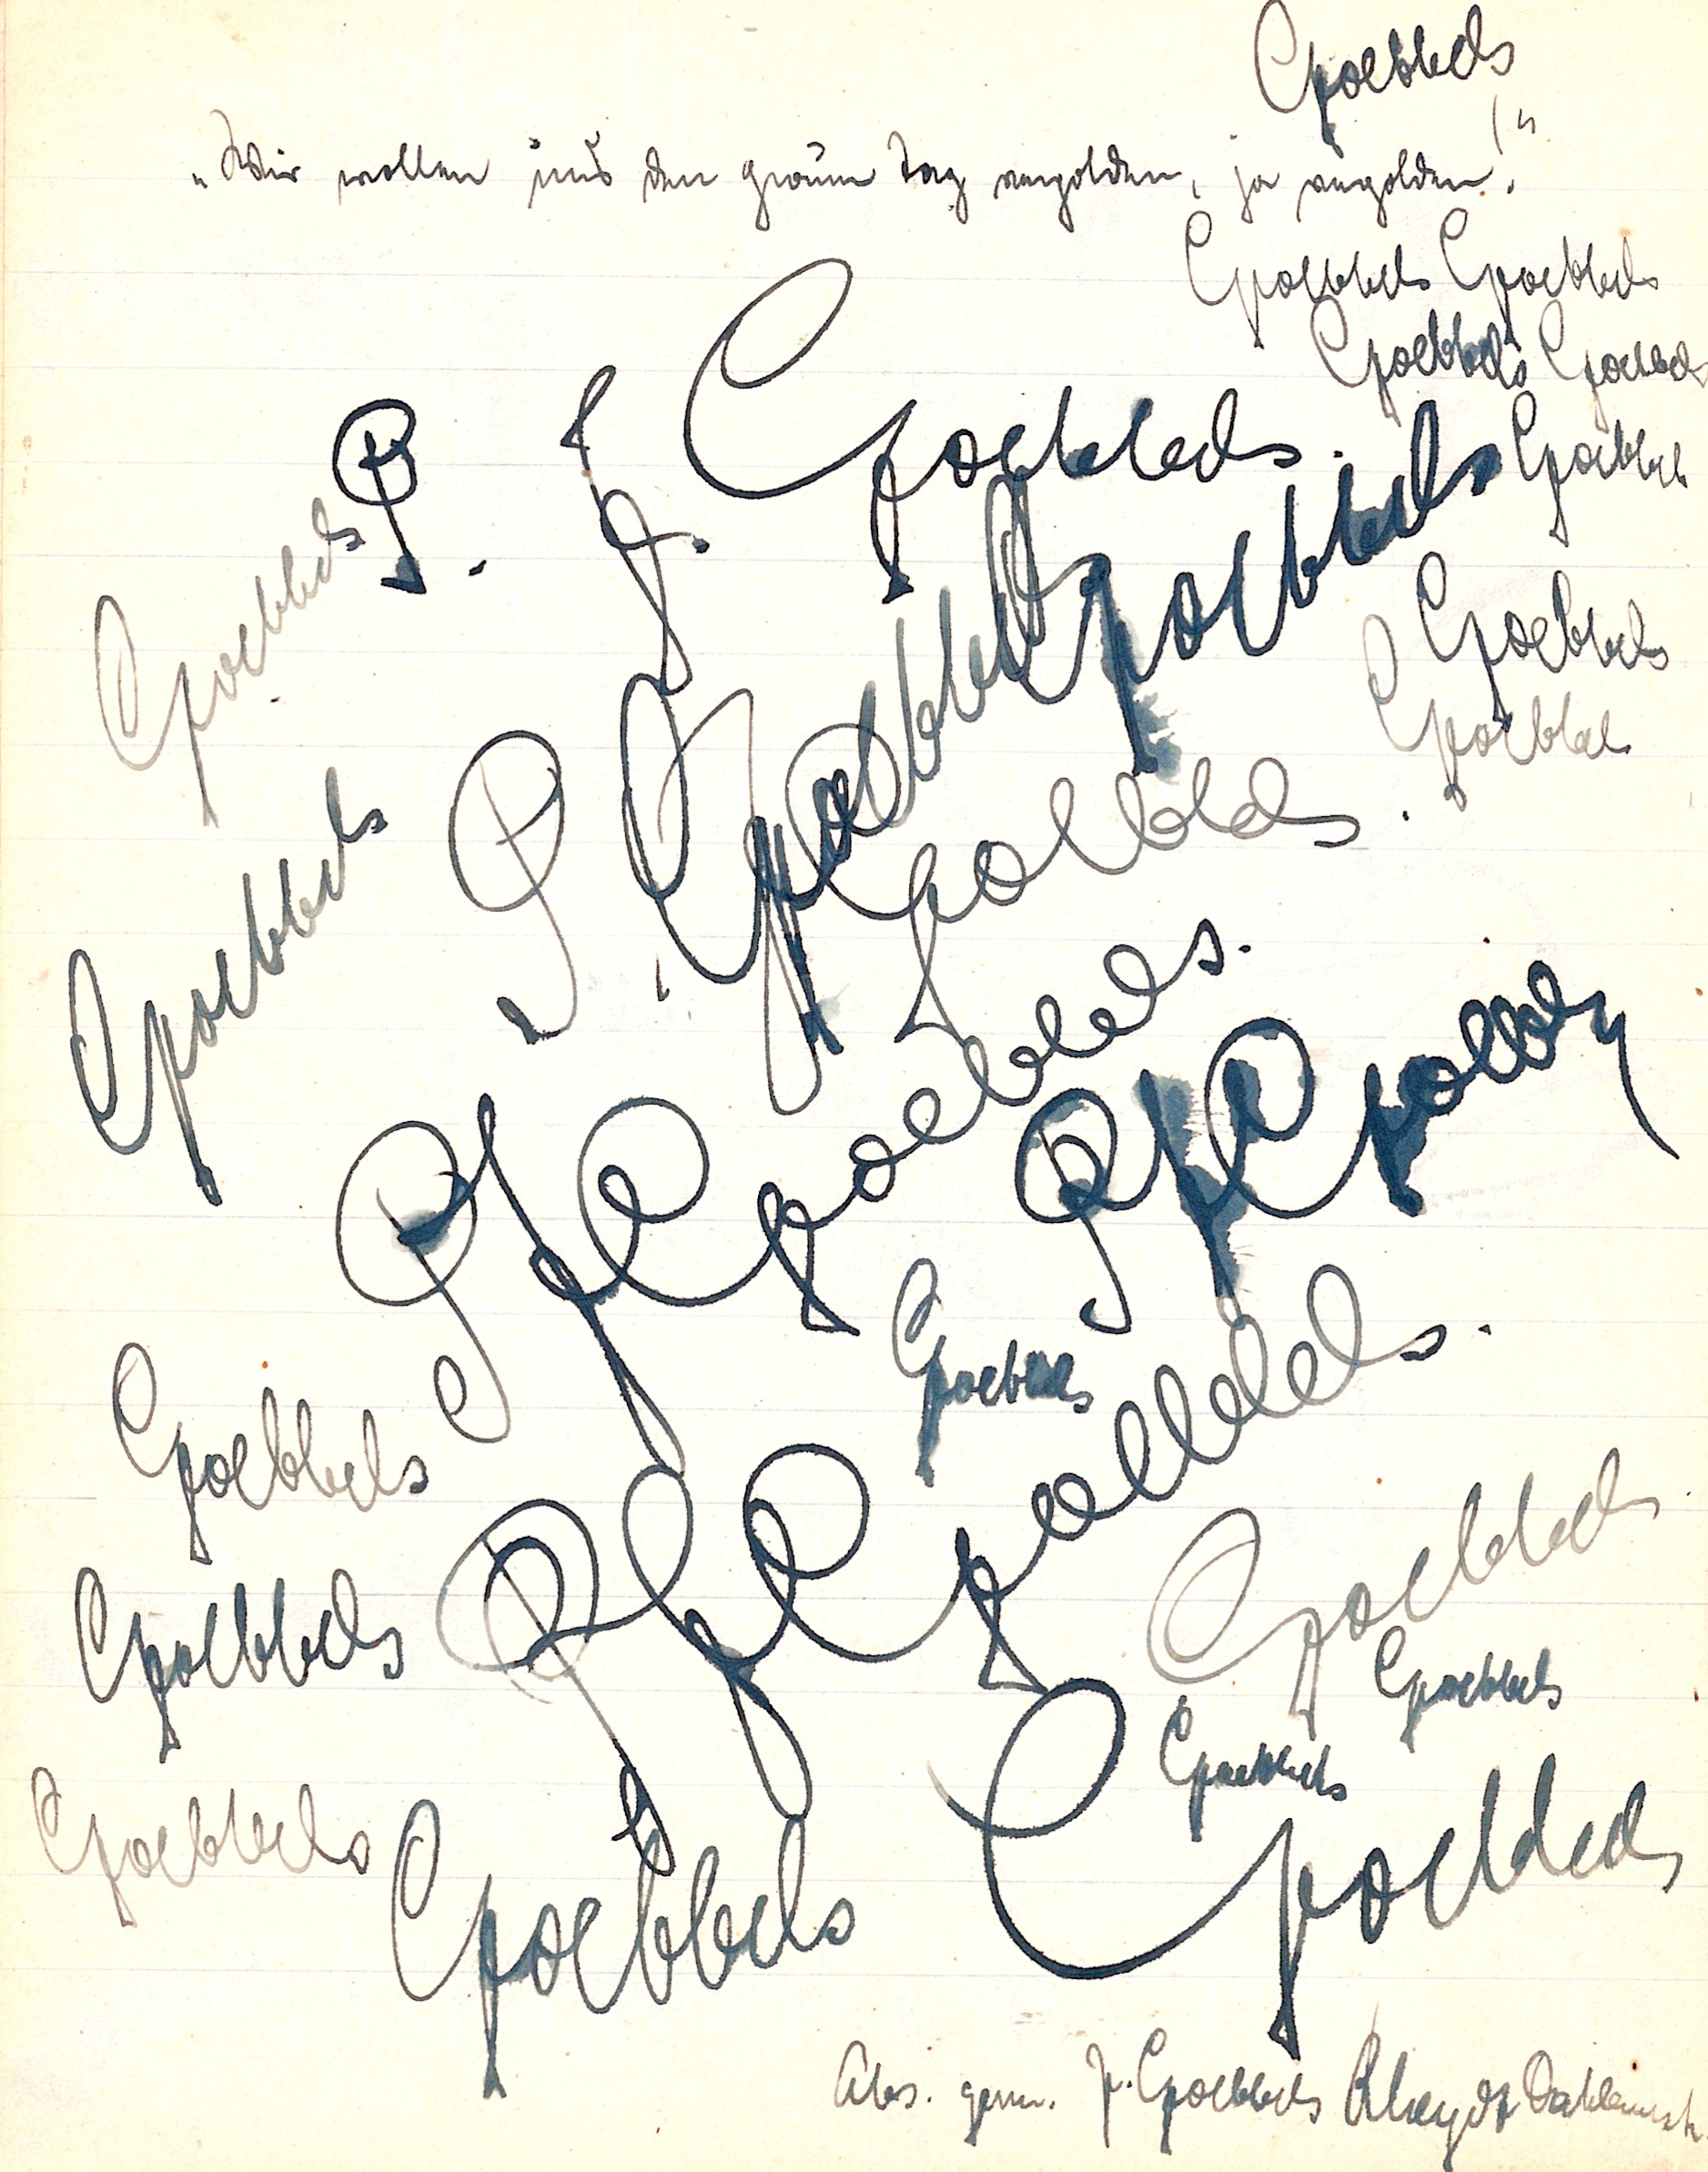 Goebbels
„Wir wollen uns den grauen Tag vergolden, ja vergolden!“
Goebbels Goebbels
Goebbels Goebbels
P. J. Goebbels.
Goebbels
Goebbels
Goebbels
Goebbels
Goebbels
Goebbels
P J Goebbels.
Goebbels
Goebbels
P J Goebbels.
P J Goebbels
Goebbels
P J Goebbels.
Goebbels
Goebbels
Goebbels
Goebbels
Goebbels
Goebbels
Goebbels
Goebbels
Abs. J. Goebbels Rheydt Dahlenerstr.